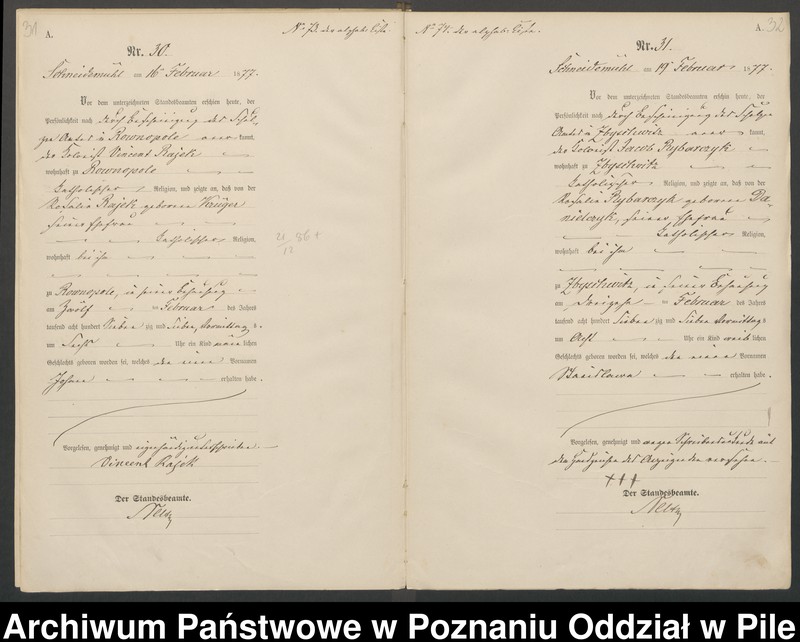 31
A.
No 73. der alphab. Liste.
Nr. 30.
Schneidemühl am 16 Februar 1877.
Vor dem unterzeichneten Standesbeamten erschien heute, der
Persönlichkeit nach durch Bescheinigung des Schul-
zen Amtes in Rownopole kannt,
der Kolonist Vincent Rajek
wohnhaft zu Rownopole
katholischer Religion, und zeigte an, daß von der
Rosalia Rajek geborene Krüger
seine Ehefrau
katholischer Religion,
wohnhaft bei ihm
zu Rownopole, in seiner Behausung
am Zwölf ten Februar des Jahres
tausend acht hundert Sieben zig und Sieben, Vormittags
um Sechs Uhr ein Kind männ lichen
Geschlechts geboren worden sei, welches den Vornamen
Johann erhalten habe.
Vorgelesen, genehmigt und eigenhändig unterschrieben.
Vincent Rajek
Der Standesbeamte.
No 74. der alphab. Liste.
A. 32
Nr. 31.
Schneidemühl am 19 Februar 1877.
Vor dem unterzeichneten Standesbeamten erschien heute, der
Persönlichkeit nach durch Bescheinigung des Schulzen
Amtes in Zbyschwitz kannt,
der Kolonist Jacob Rybarczyk
wohnhaft zu Zbyschwitz
katholischer Religion, und zeigte an, daß von der
Rosalia Rybarczyk geborene Da-
nielczyk, seiner Ehefrau
katholischer Religion,
wohnhaft bei ihm
zu Zbyschwitz, in seiner Behausung
am Dreizehn ten Februar des Jahres
tausend acht hundert Sieben zig und Sieben Vormittags
um Acht Uhr ein Kind weib lichen
Geschlechts geboren worden sei, welches den Vornamen
Stanislawa erhalten habe.
Vorgelesen, genehmigt und wegen Schreibensunkunde mit
den Handzeichen des Anzeigenden versehen.
+++
Der Standesbeamte.
Archiwum Państwowe w Poznaniu Oddział w Pile